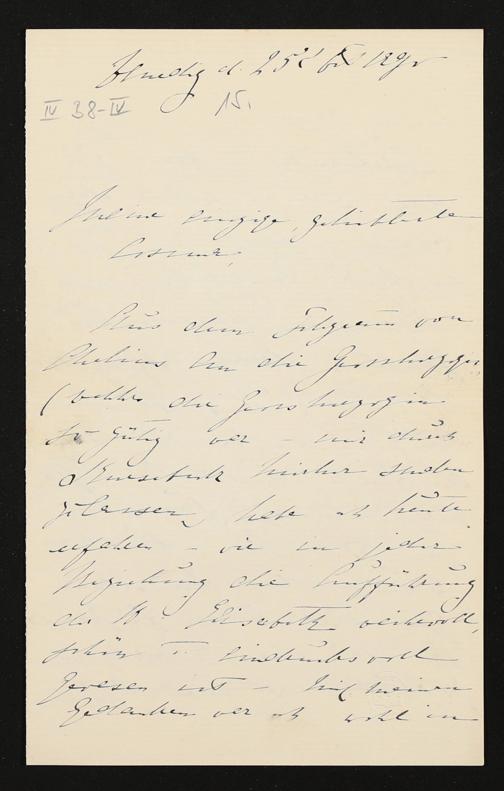 Venedig d. 25t 189
IV 38-IV 15.
Meine einzige, geliebteste
Cosima,
Aus dem Telegramm von
an die Grossherzogin
(welches die Grossherzogin
so gütig war – mir durch
hierher senden
zu lassen, habe ich heute
erfahren – wie in jeder
Beziehung die Aufführung
der H. Elisabeth weihevoll,
schön u. eindrucksvoll
gewesen ist – Mit meinen
Gedanken war ich wohl in